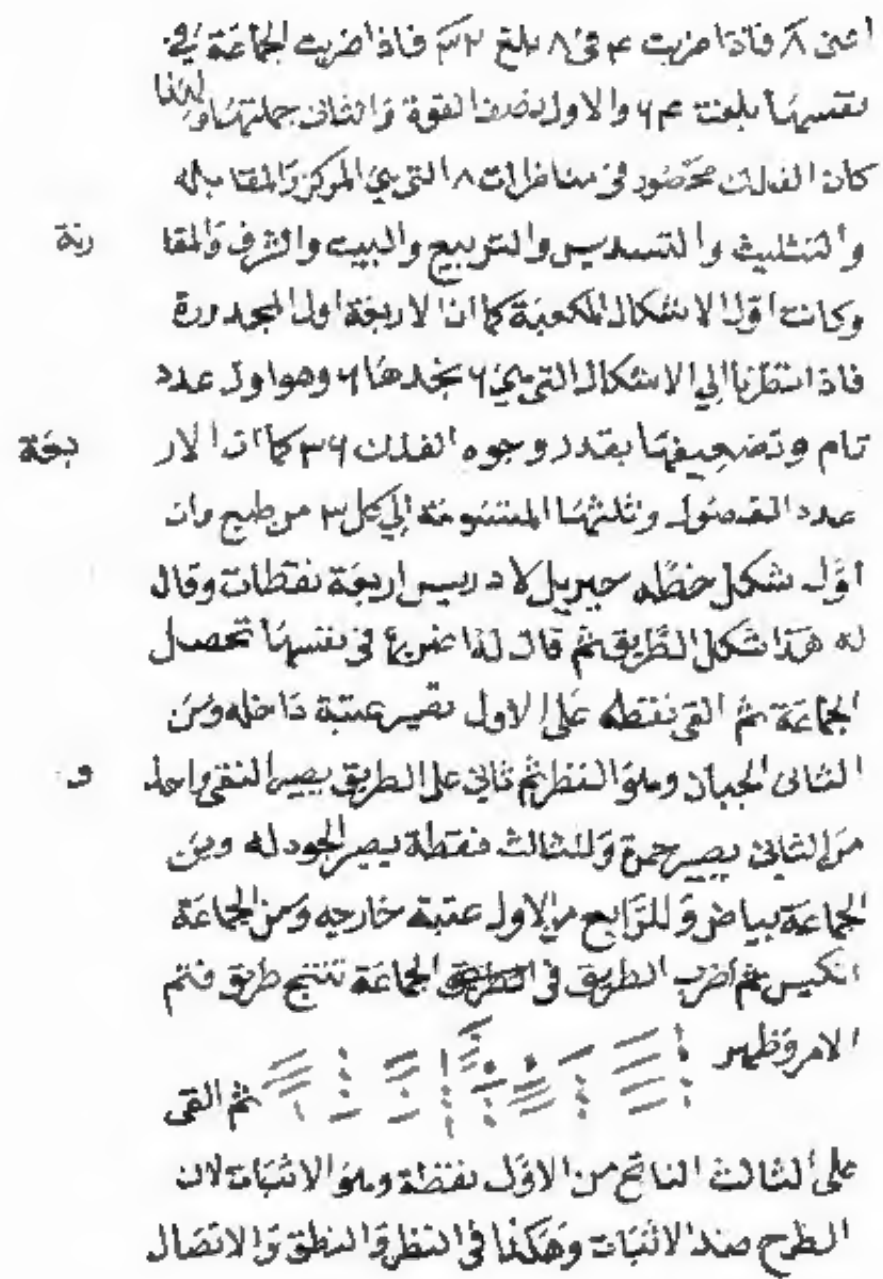 اثنى ٨ فاذا ضربت ٤ فى ٨ بلغ ٣٢ فاذا ضربت الجماعة فى
نفسها بلغت ٦٤ والاول نصف القوة والثانى جملتها ولهذا
كان الفلك محصور فى مناظرات ٨ التى هى المركز والمقابله
والتثليث والتسديس والتربيع والبيت والشرف والمقا رنة
وكانت اول الاشكال المكعبة كما ان الاربعة اول المجدورة
فاذا انتظرنا الى الاشكال التى هى ٦ نجدها ٦ وهو اول عدد
تام وتضعيفها بقدر وجوه الفلك ٣٦ كما ان الار بعة
عدد الفصول وثلثها المنسومة الى كل ٣ من طبع وان
اول شكل خطه جبريل لادريس اربعة نقطات وقال
له هذا شكل الطريق ثم قال له اضربها فى نفسها تحصل
الجماعة ثم القى نقطه على الاول تصير عتبة داخله ومن
الثانى الحيان وهو النظر ثم ثانى على الطريق يصير النقى واحد و
من الثانى يصير حمرة وللثالث نقطة يصير الجودله ومن
الجماعة بياض وللرابع من الاول عتبة خارجه ومن الجماعة
انكيس ثم اضرب الطريق فى الجماعة تنتج طريق فتم
الامر وظهر ثم القى
على الثالث الناتج من الاول نقطة وهو الاثبات لان
الطرح ضد الاثبات وهكذا فى النظر والنطق والاتصال